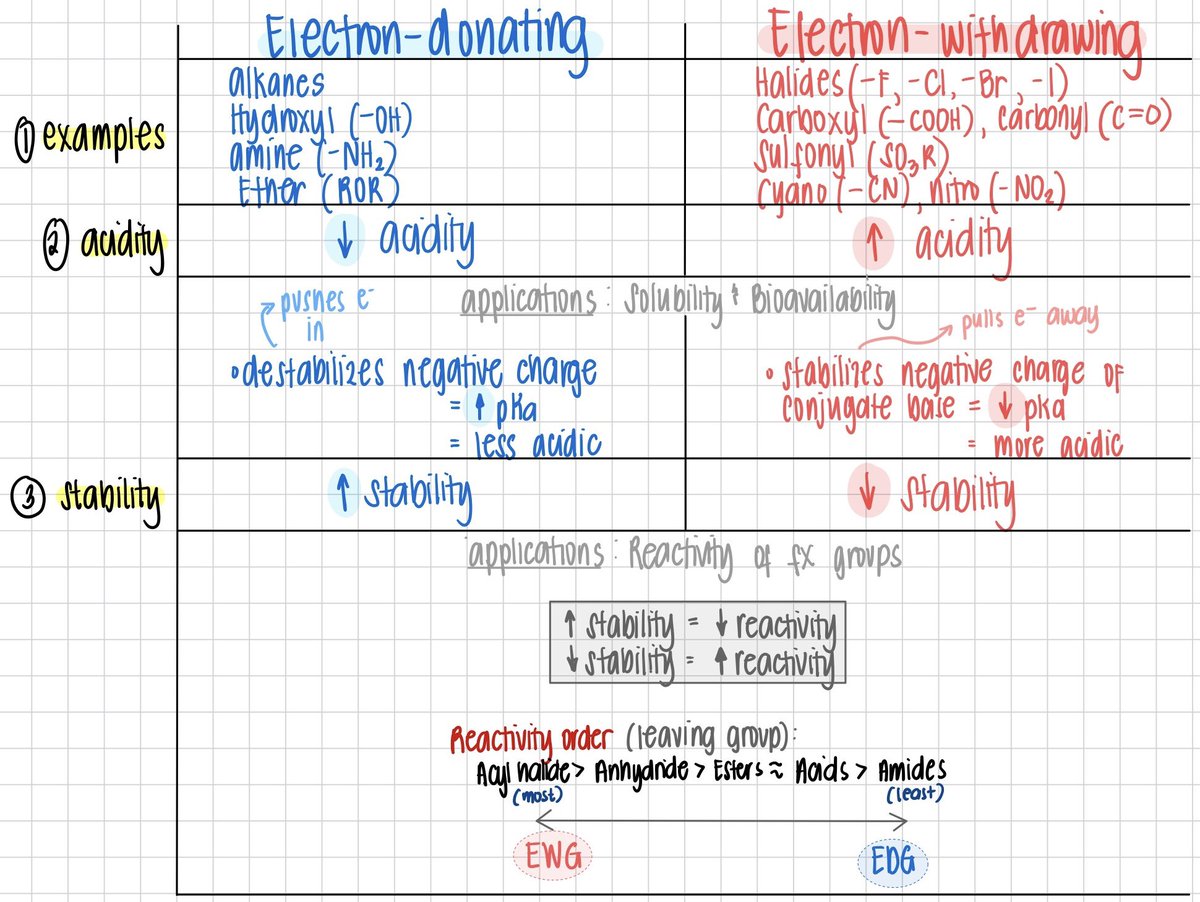 Electron-donating
Electron-withdrawing
① examples
alkanes
Hydroxyl (-OH)
amine (-NH₂)
Ether (ROR)
Halides (-F, -Cl, -Br, -I)
Carboxyl (-COOH), carbonyl (C=O)
Sulfonyl (SO₃R)
Cyano (-CN), nitro (-NO₂)
② acidity
↓ acidity
↑ acidity
applications: Solubility & Bioavailability
pushes e⁻
in
• destabilizes negative charge
= ↑ pka
= less acidic
pulls e⁻ away
• stabilizes negative charge of
conjugate base = ↓ pka
= more acidic
③ stability
↑ stability
↓ stability
applications: Reactivity of fx groups
↑ stability = ↓ reactivity
↓ stability = ↑ reactivity
Reactivity order (leaving group):
Acyl halide > Anhydride > Esters ≈ Acids > Amides
(most) (least)
EWG EDG